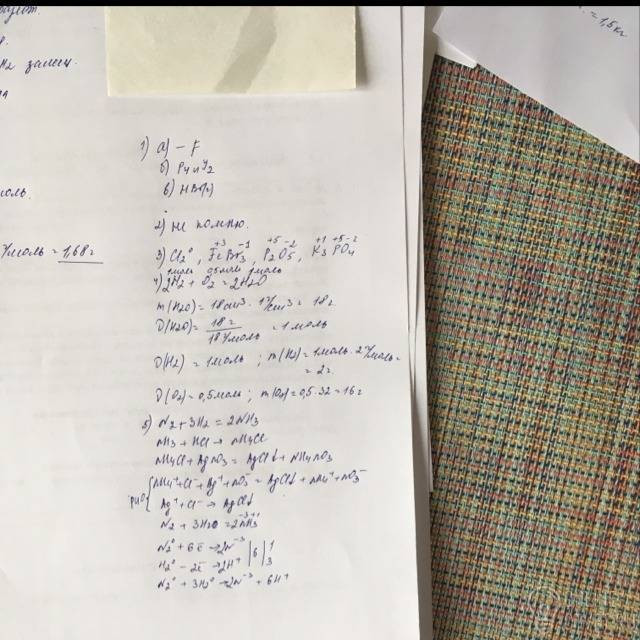 H2 замещ.
моль.
г/моль = 1,68г
. = 1,5кг
1) а) - F
б) P4 и I2
в) HBr(р)
2) не помню.
3) Cl2⁰, Fe⁺³Br3⁻¹, P2⁺⁵O5⁻², K3⁺¹P⁺⁵O4⁻²
1моль 0,5моль 1моль
4) 2H2 + O2 = 2H2O
m(H2O) = 18см³ · 1г/см³ = 18г
υ(H2O) = 18г / 18г/моль = 1моль
υ(H2) = 1моль ; m(H2) = 1моль · 2г/моль =
= 2г.
υ(O2) = 0,5моль ; m(O2) = 0,5 · 32 = 16г
5) N2 + 3H2 = 2NH3
NH3 + HCl → NH4Cl
NH4Cl + AgNO3 = AgCl↓ + NH4NO3
NH4⁺ + Cl⁻ + Ag⁺ + NO3⁻ = AgCl↓ + NH4⁺ + NO3⁻
РИО
Ag⁺ + Cl⁻ → AgCl↓
N2⁰ + 3H2⁰ = 2N⁻³H3⁺¹
N2⁰ + 6ē → 2N⁻³ | 6 | 1
H2⁰ - 2ē → 2H⁺ | 3
N2⁰ + 3H2⁰ → 2N⁻³ + 6H⁺